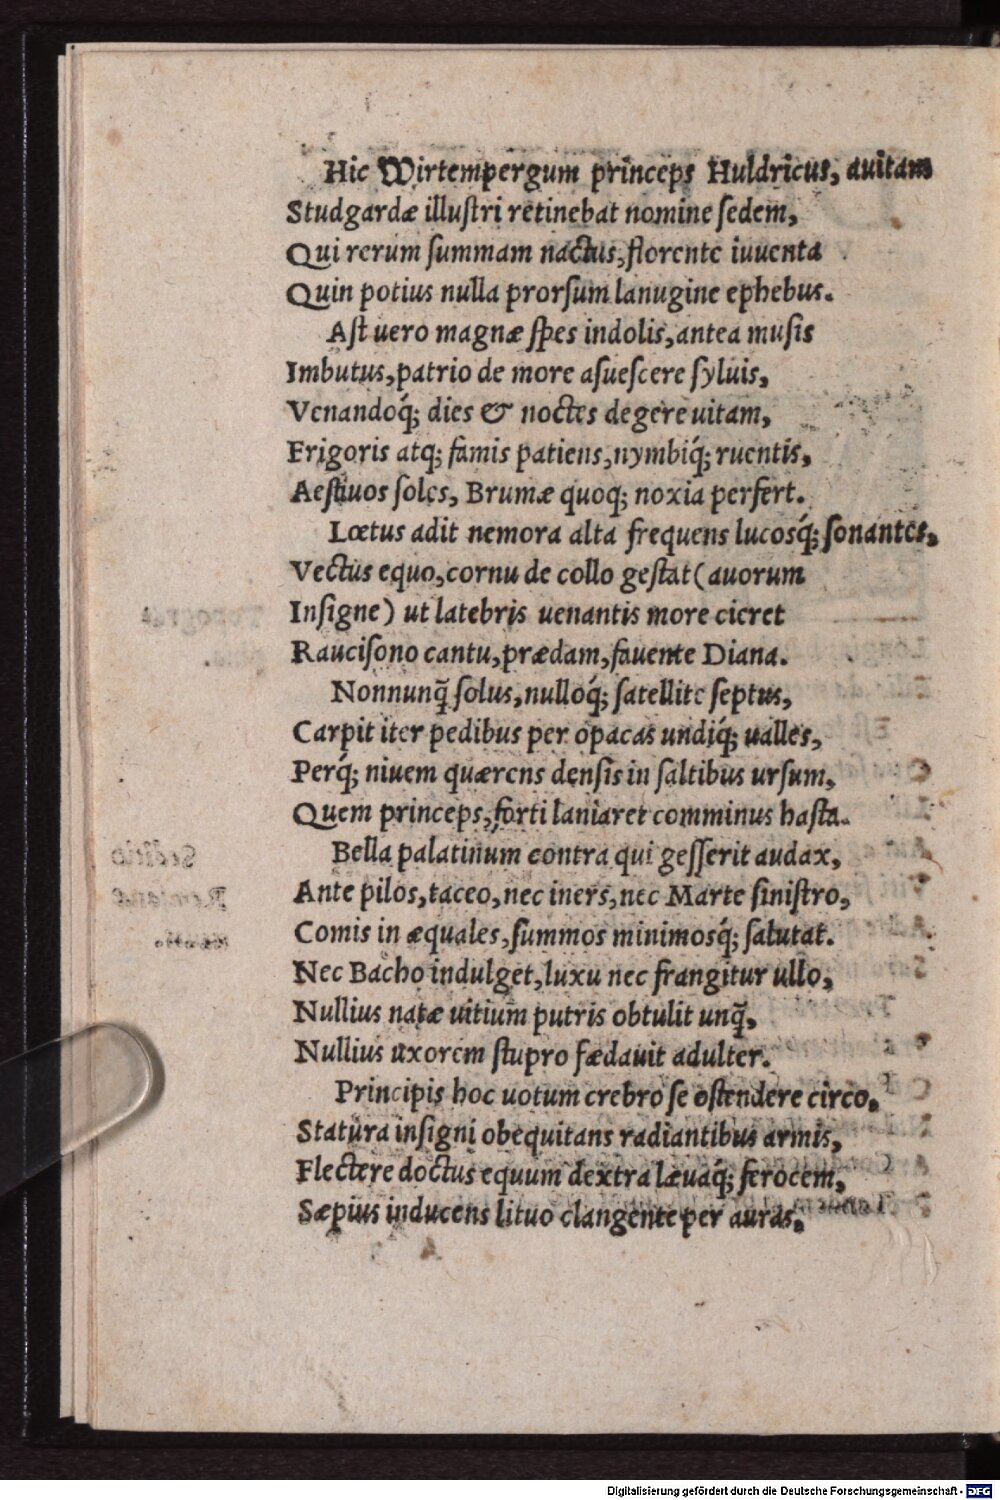 Hic Wirtempergum princeps Huldricus, auitam
Studgardæ illuſtri retinebat nomine ſedem,
Qui rerum ſummam nactus, florente iuuenta
Quin potius nulla prorſum lanugine ephebus.
Aſt uero magnæ ſpes indolis, antea muſis
Imbutus, patrio de more aſueſcere ſyluis,
Venandoq́; dies & noctes degere uitam,
Frigoris atq; famis patiens, nymbiq́; ruentis,
Aeſtiuos ſoles, Brumæ quoq; noxia perfert.
Lœtus adit nemora alta frequens lucosq́; ſonantes,
Vectus equo, cornu de collo geſtat (auorum
Inſigne) ut latebris uenantis more cieret
Rauciſono cantu, prædam, fauente Diana.
Nonnunq̃ ſolus, nulloq́; ſatellite ſeptus,
Carpit iter pedibus per opacas undiq́; ualles,
Perq́; niuem quærens denſis in ſaltibus urſum,
Quem princeps, forti laniaret comminus haſta.
Bella palatinum contra qui geſſerit audax,
Ante pilos, taceo, nec iners, nec Marte ſiniſtro,
Comis in æquales, ſummos minimosq́; ſalutat.
Nec Bacho indulget, luxu nec frangitur ullo,
Nullius natæ uitium putris obtulit unq̃,
Nullius uxorem ſtupro fædauit adulter.
Principis hoc uotum crebro ſe oſtendere circo,
Statura inſigni obequitans radiantibus armis,
Flectere doctus equum dextra læuaq́; ferocem,
Sæpius inducens lituo clangente per auras,
Digitalisierung gefördert durch die Deutsche Forschungsgemeinschaft - DFG